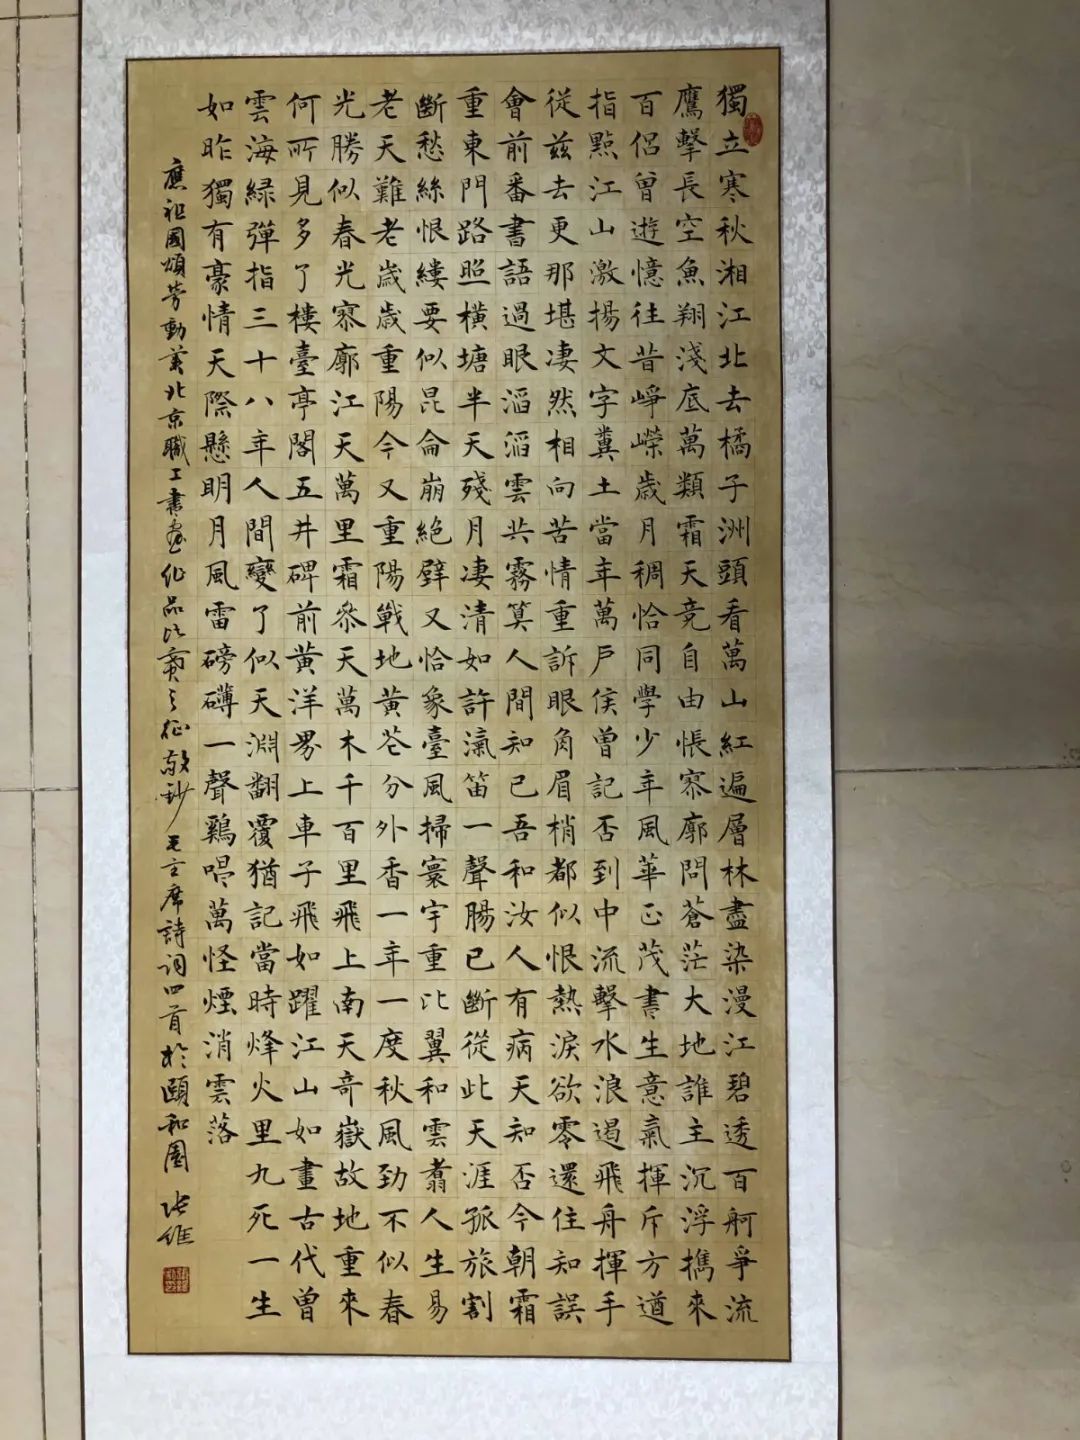 獨立寒秋湘江北去橘子洲頭看萬山紅遍層林盡染漫江碧透百舸爭流
鷹擊長空魚翔淺底萬類霜天競自由悵寥廓問蒼茫大地誰主沉浮攜來
百侶曾遊憶往昔崢嶸歲月稠恰同學少年風華正茂書生意氣揮斥方遒
指點江山激揚文字糞土當年萬戶侯曾記否到中流擊水浪遏飛舟揮手
從茲去更那堪凄然相向苦情重訴眼角眉梢都似恨熱淚欲零還住知誤
會前番書語過眼滔滔雲共霧算人間知己吾和汝人有病天知否今朝霜
重東門路照橫塘半天殘月凄清如許滊笛一聲腸已斷從此天涯孤旅割
斷愁絲恨縷要似昆侖崩絕壁又恰象臺風掃寰宇重比翼和雲翥人生易
老天難老歲歲重陽今又重陽戰地黃花分外香一年一度秋風勁不似春
光勝似春光寥廓江天萬里霜參天萬木千百里飛上南天奇嶽故地重來
何所見多了樓臺亭閣五井碑前黃洋界上車子飛如躍江山如畫古代曾
雲海綠彈指三十八年人間變了似天淵翻覆猶記當時烽火里九死一生
如昨獨有豪情天際懸明月風雷磅礴一聲鷄唱萬怪煙消雲落
應祖國頌勞動美北京職工書畫作品比賽之征敬鈔毛主席詩詞四首於頤和園 張維